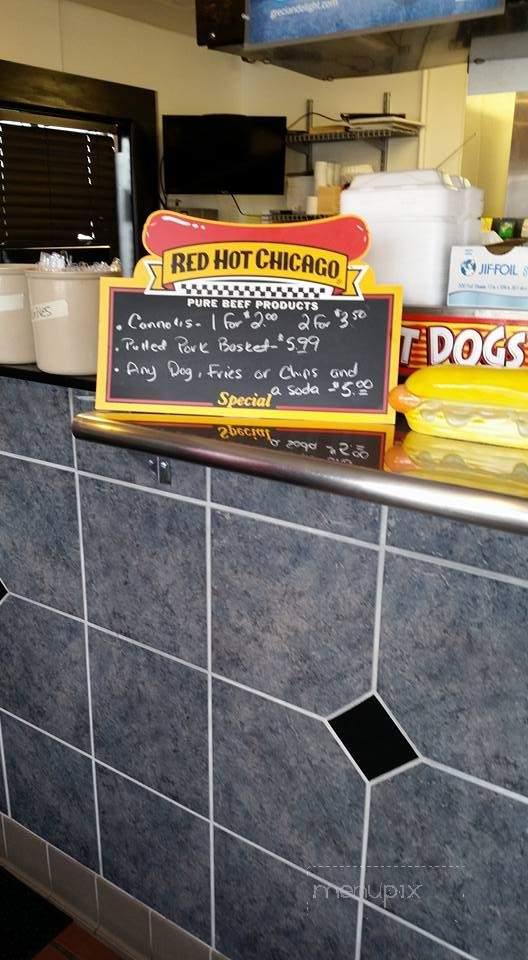 greciandelight.com
RED HOT CHICAGO
PURE BEEF PRODUCTS
• Cannolis - 1 for $2.00 2 for $3.50
• Pulled Pork Basket - $5.99
• Any Dog, Fries or Chips and
a soda - $5.00
Special
JIF-FOIL
T DOGS
menupix